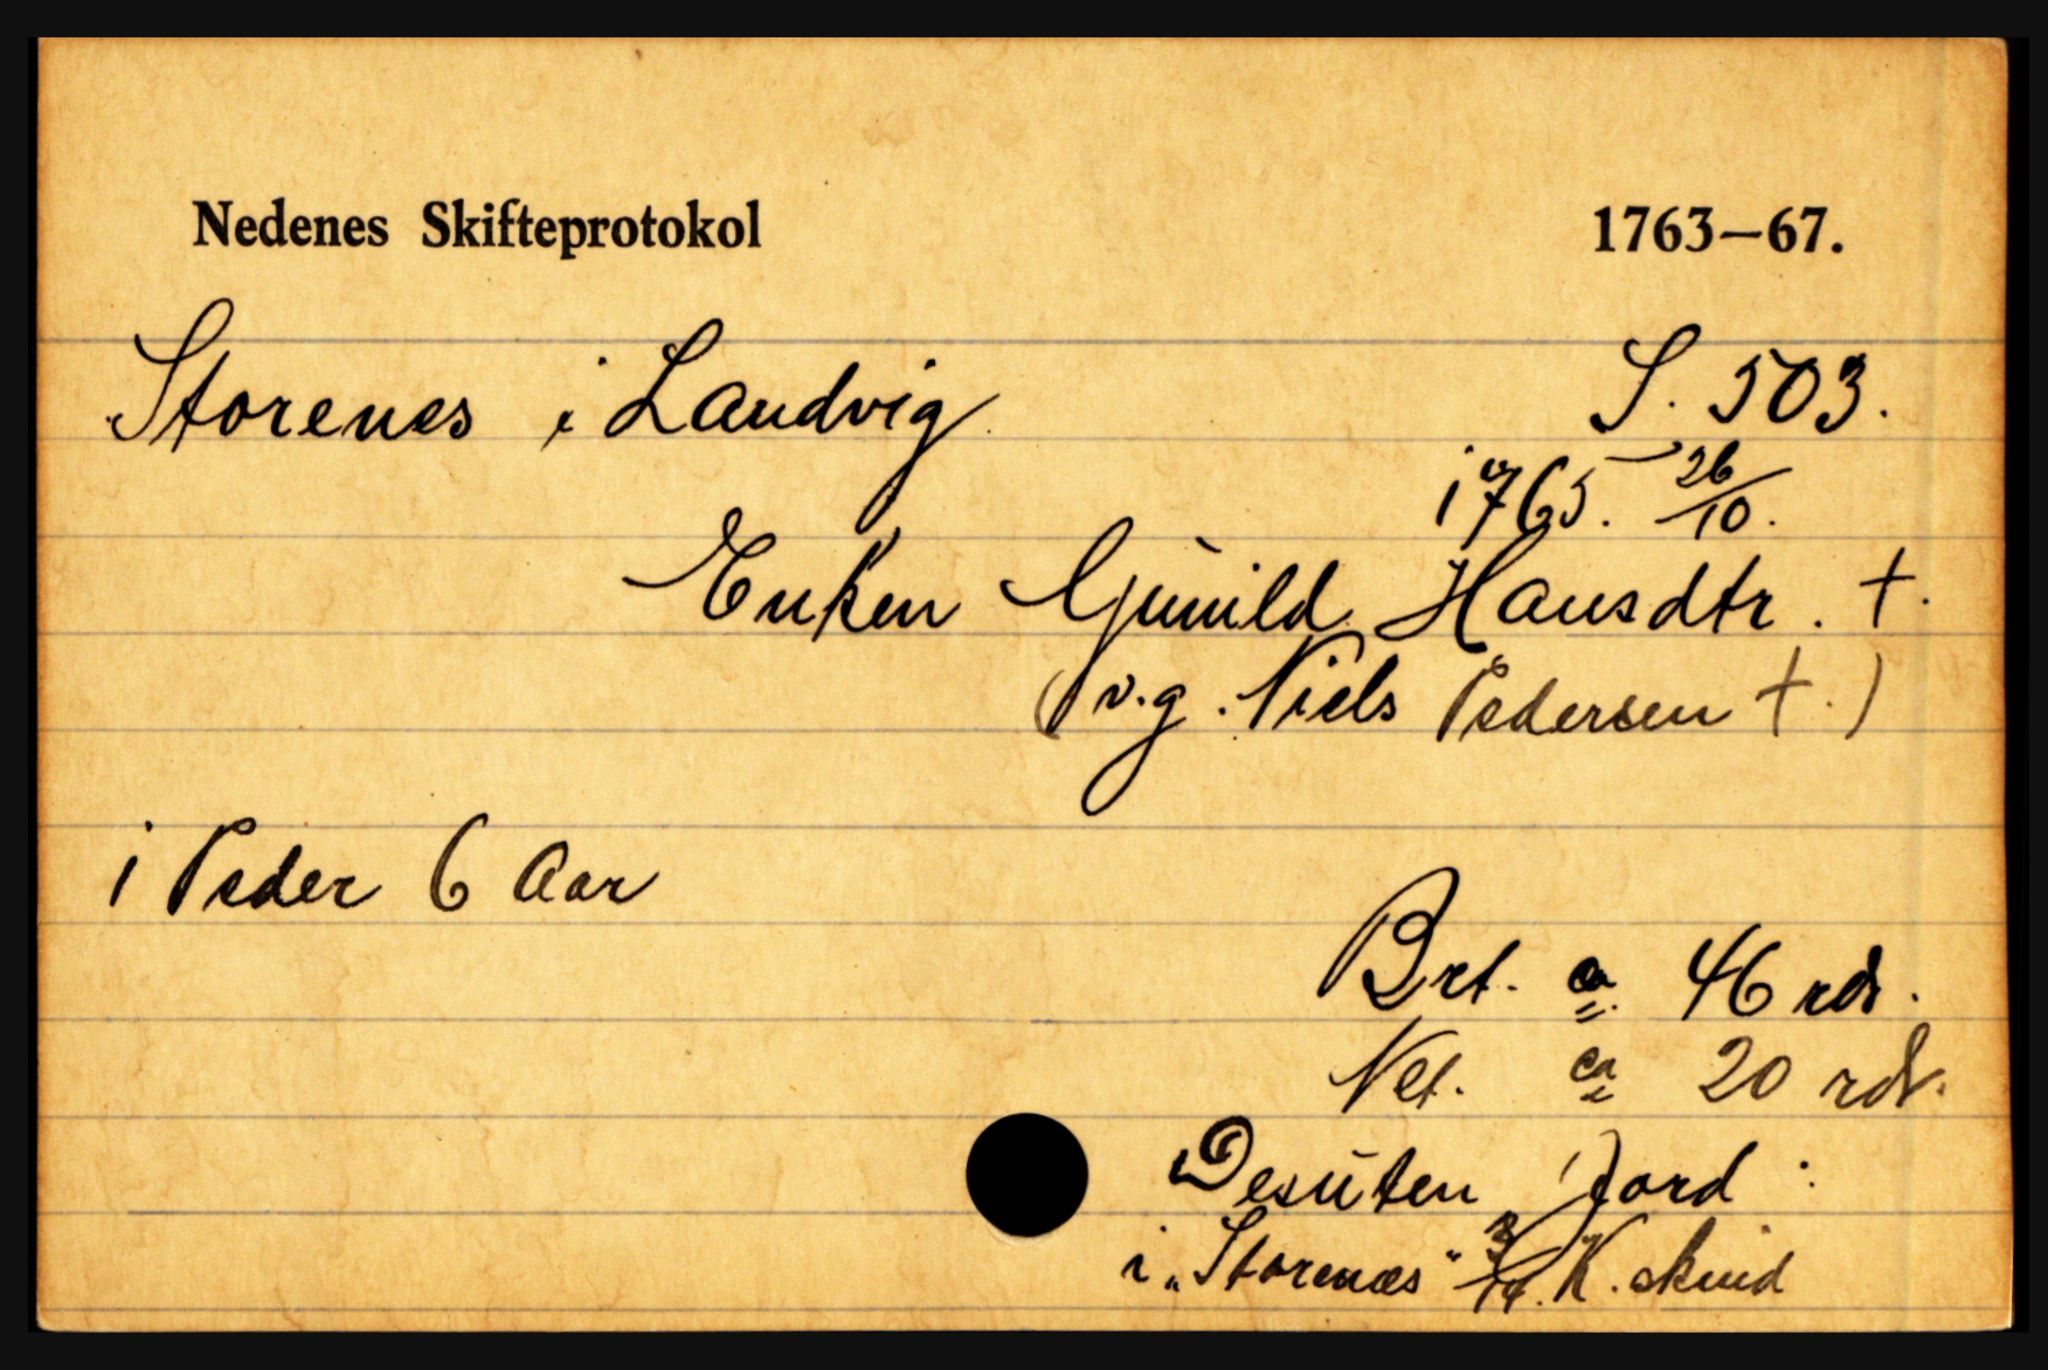 Nedenes Skifteprotokol 1763—67.
Storenes i Landvig S. 503.
1765. 26/10.
Enken Gunild Hansdtr. †.
(v.g. Niels Pedersen †.)
1 Peder 6 Aar
Brt. ca 46 rdr.
Net. ca 20 rdr.
Desuten Jord:
i „Storenæs" K. skind